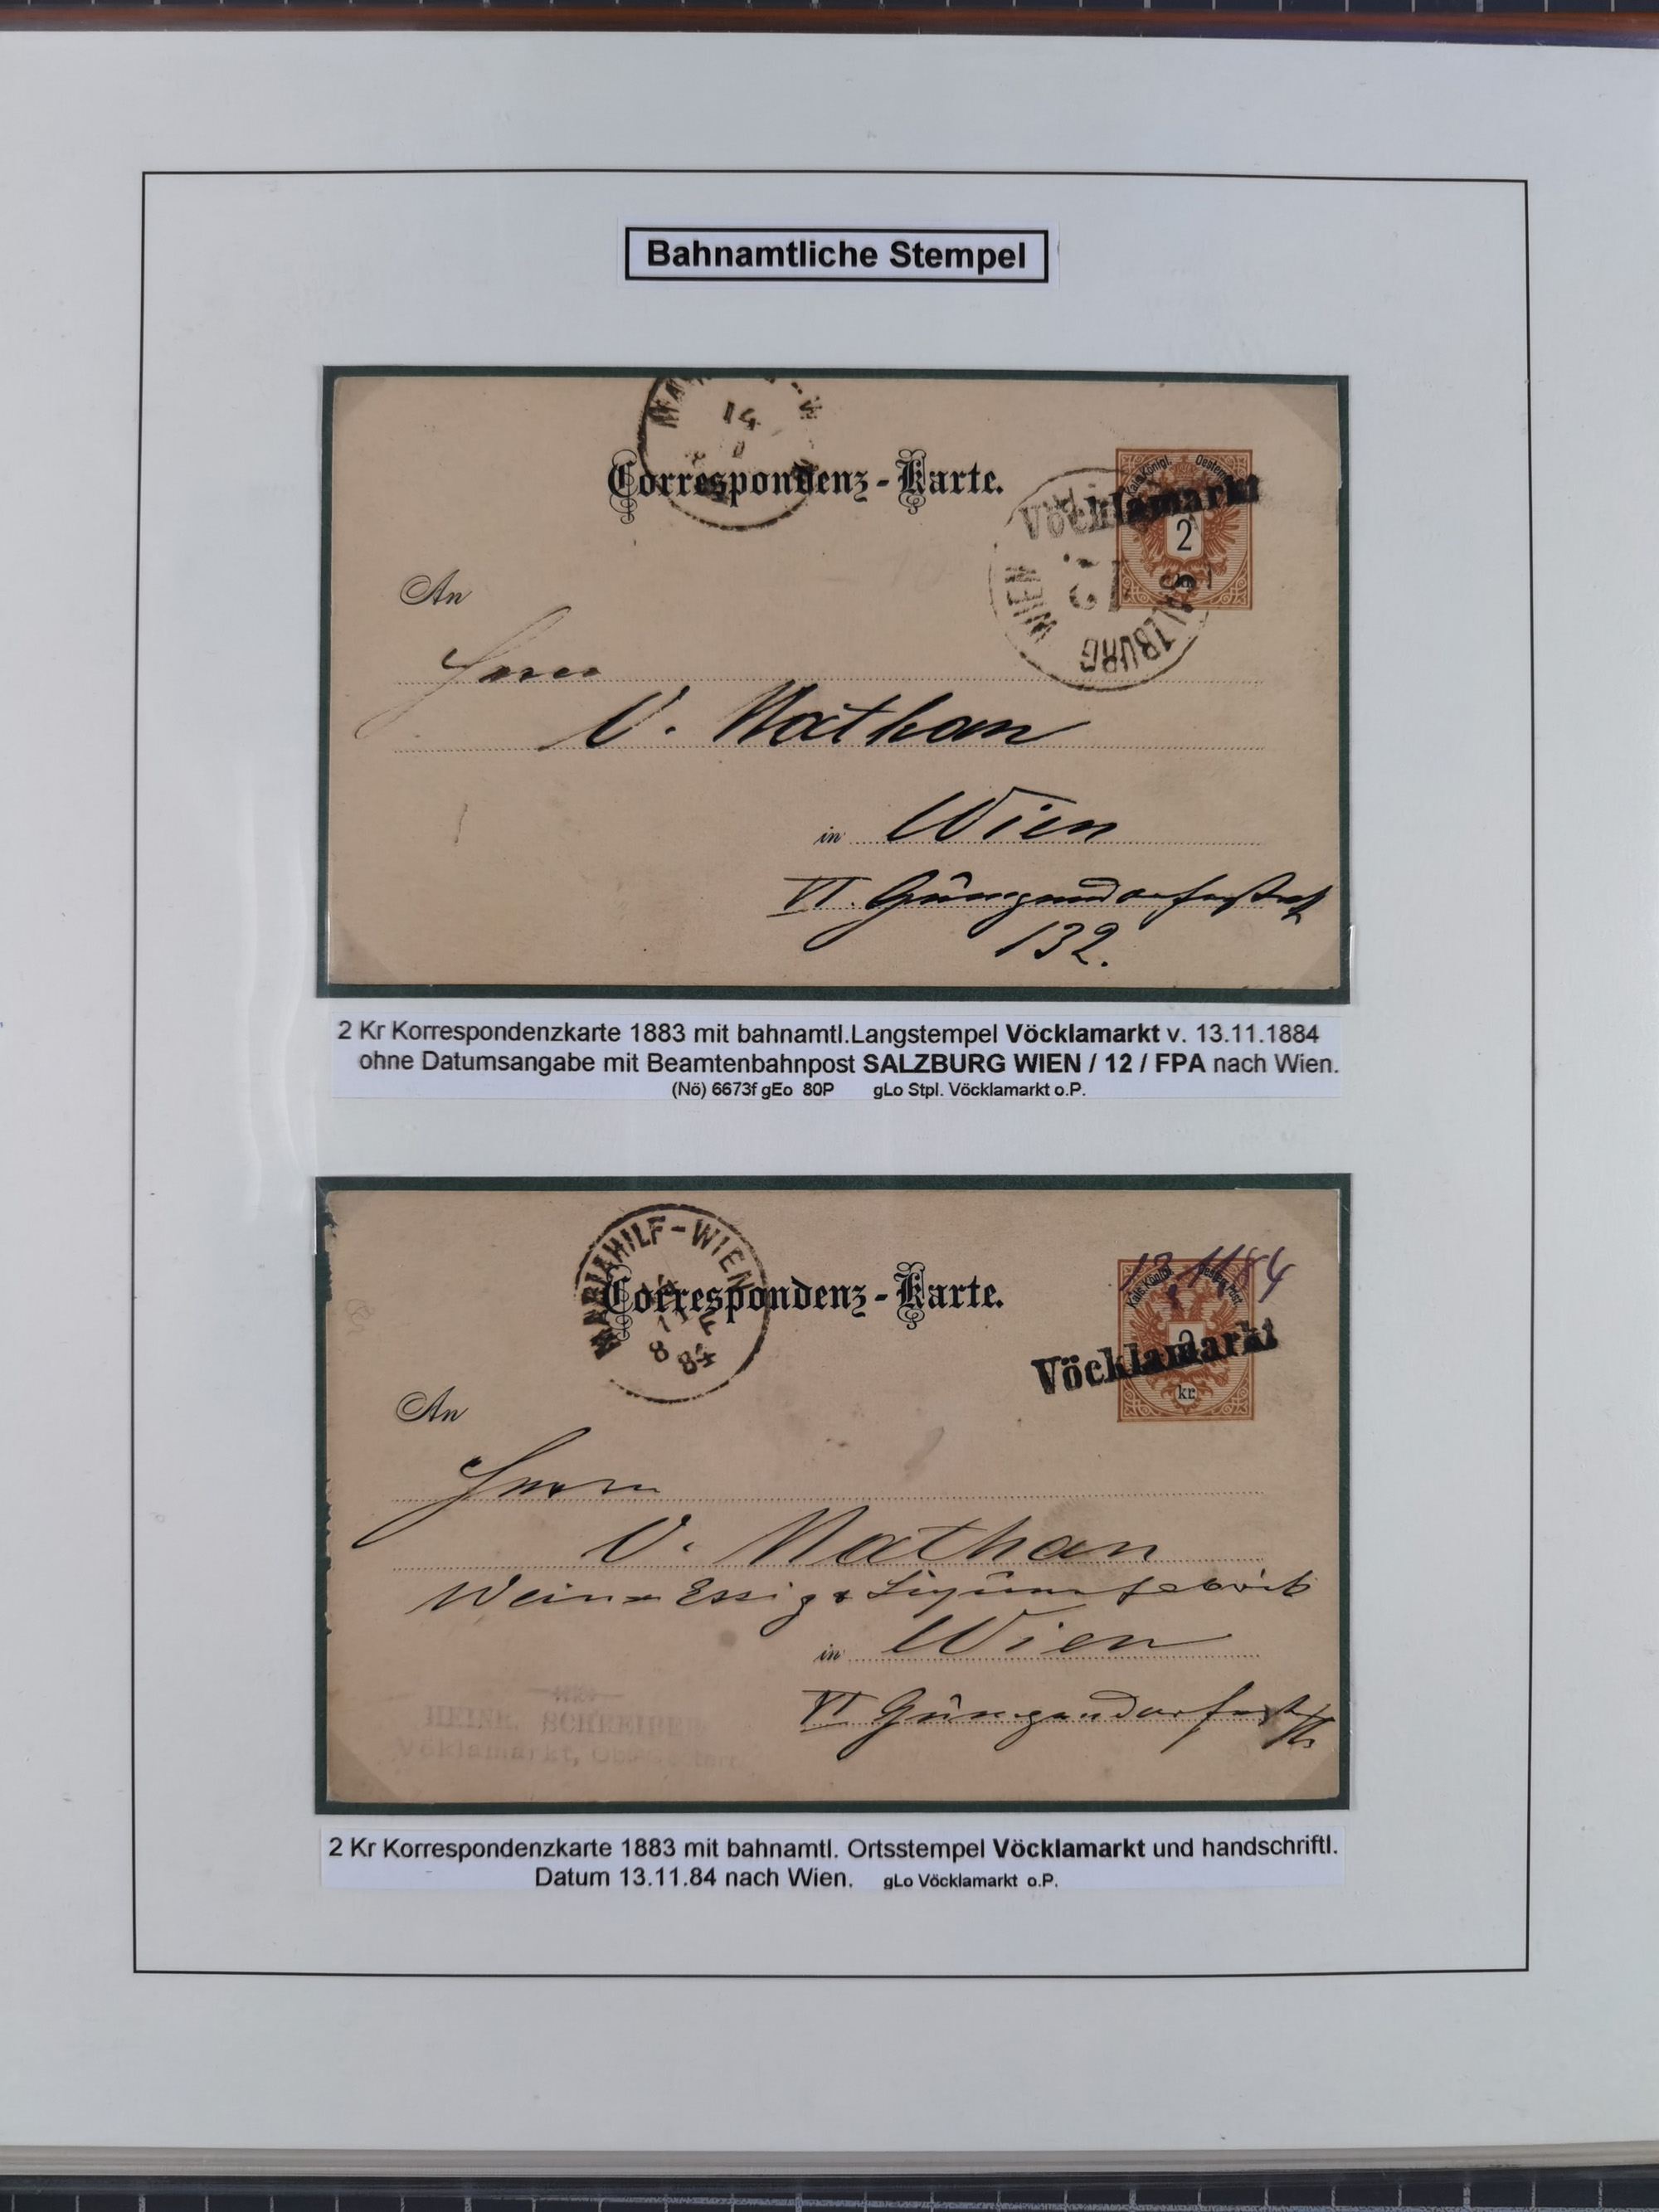 Bahnamtliche Stempel
14
Correspondenz-Karte.
Kais. Königl.
Vöcklamarkt
2
WIEN
SALZBURG
An
V. Nathan
in Wien
VI. Gumpendorferstrasse
132.
2 Kr Korrespondenzkarte 1883 mit bahnamtl.Langstempel Vöcklamarkt v. 13.11.1884
ohne Datumsangabe mit Beamtenbahnpost SALZBURG WIEN / 12 / FPA nach Wien.
(Nö) 6673f gEo 80P gLo Stpl. Vöcklamarkt o.P.
MARIAHILF-WIEN
14
11
8 F
84
Correspondenz-Karte.
13 11 84
Kais. Königl.
Vöcklamarkt
kr.
An
Herrn
V. Nathan
Wein- Essig &
in Wien
VI
HEINR. SCHREIBER
Vöklamarkt,
2 Kr Korrespondenzkarte 1883 mit bahnamtl. Ortsstempel Vöcklamarkt und handschriftl.
Datum 13.11.84 nach Wien. gLo Vöcklamarkt o.P.